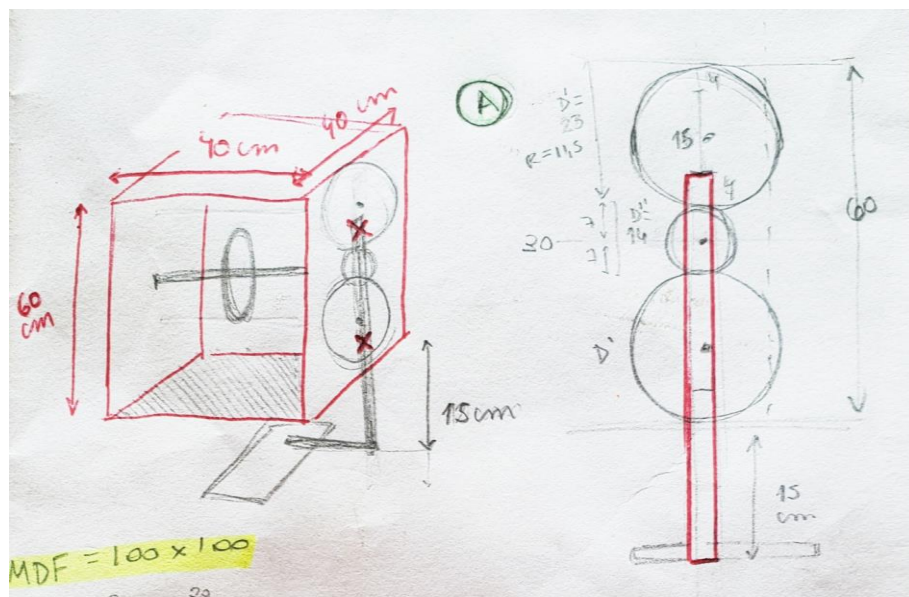 40 cm
40 cm
60
cm
15 cm
MDF = 100 x 100
A
D' =
23
R = 11,5
4
15
4
7
D" =
14
30
7
60
D'
15
cm